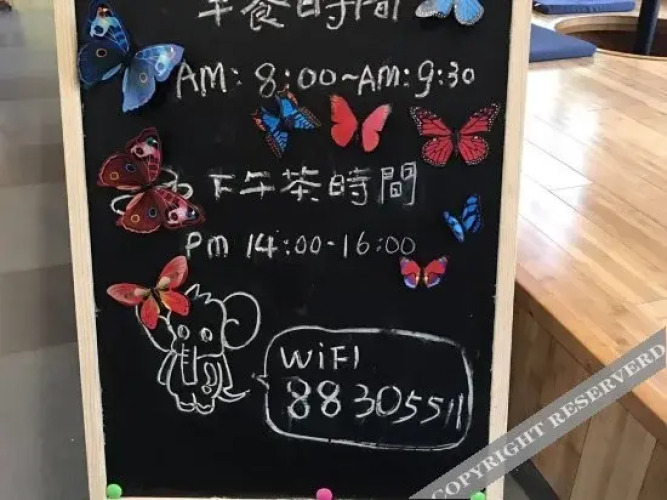 早餐時間
AM: 8:00~AM:9:30
下午茶時間
PM 14:00-16:00
WiFI
88305511
COPYRIGHT RESERVERD